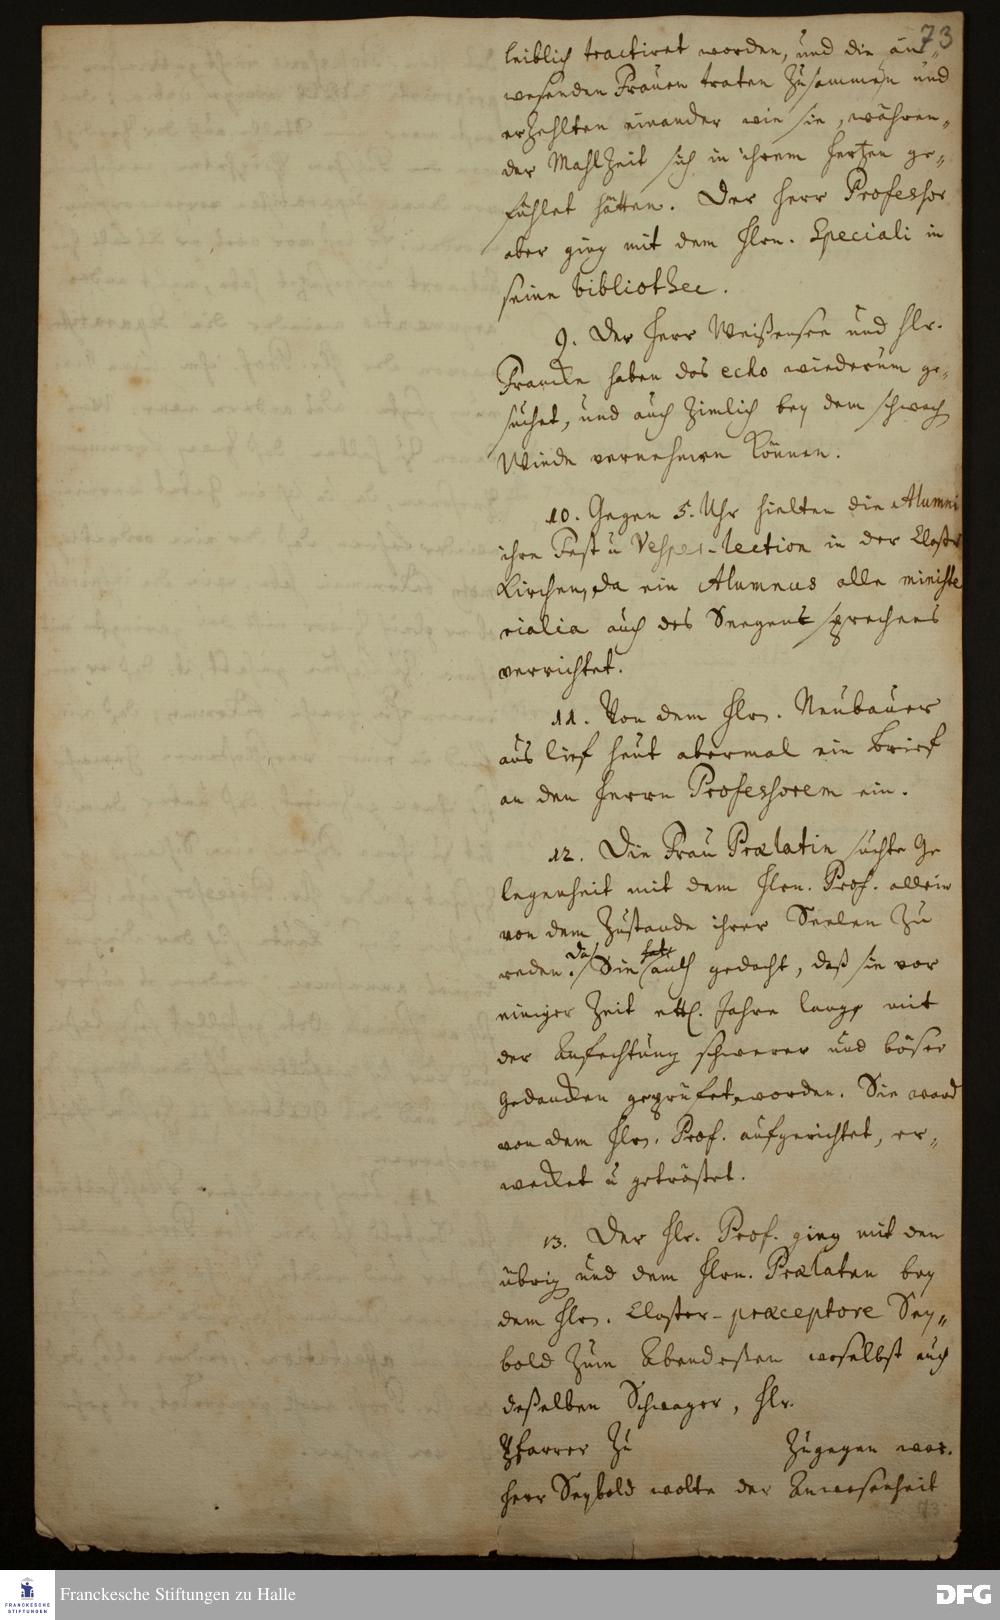 73
leiblich tractiret worden, und die an-
wesenden Frauen traten zusammen und
erzehlten einander wie sie, währen-
der Mahlzeit sich in ihrem Hertzen ge-
fühlet hätten. Der Herr Professor
aber ging mit dem Hrn. Speciali in
seine bibliothec.
9. Der Herr Weißensee und Hr.
Francke haben das echo wiederum ge-
suchet, und auch zimlich bey dem schwach
Winde vernehmen können.
10. Gegen 5. Uhr hielten die Alumni
ihre Fest u Vesper-lection in der Closter
Kirchen, da ein Alumnus alle ministe
rialia auch des Seegens sprechens
verrichtet.
11. Von dem Hrn. Neubauer
aus lief heut abermal ein Brief
an den Herrn Professorem ein.
12. Die Frau Prælatin suchte Ge
legenheit mit dem Hrn. Prof. allein
von dem Zustande ihrer Seelen zu
reden. Da Sie auch gedacht, daß sie vor
einiger Zeit ettl. Jahre lang mit
der Anfechtung schwerer und böser
Gedancken geprüfet worden. Sie ward
von dem Hrn. Prof. aufgerichtet, er-
wecket u getröstet.
13. Der Hr. Prof. ging mit den
übrig und dem Hrn. Prælaten bey
dem Hrn. Closter-præceptore Sey-
bold zum Abendeßen woselbst auch
deßelben Schwager, Hr.
Pfarrer zu zugegen war.
Herr Seybold wolte der Anwesenheit
73
FRANCKESCHE
STIFTUNGEN
Franckesche Stiftungen zu Halle
DFG